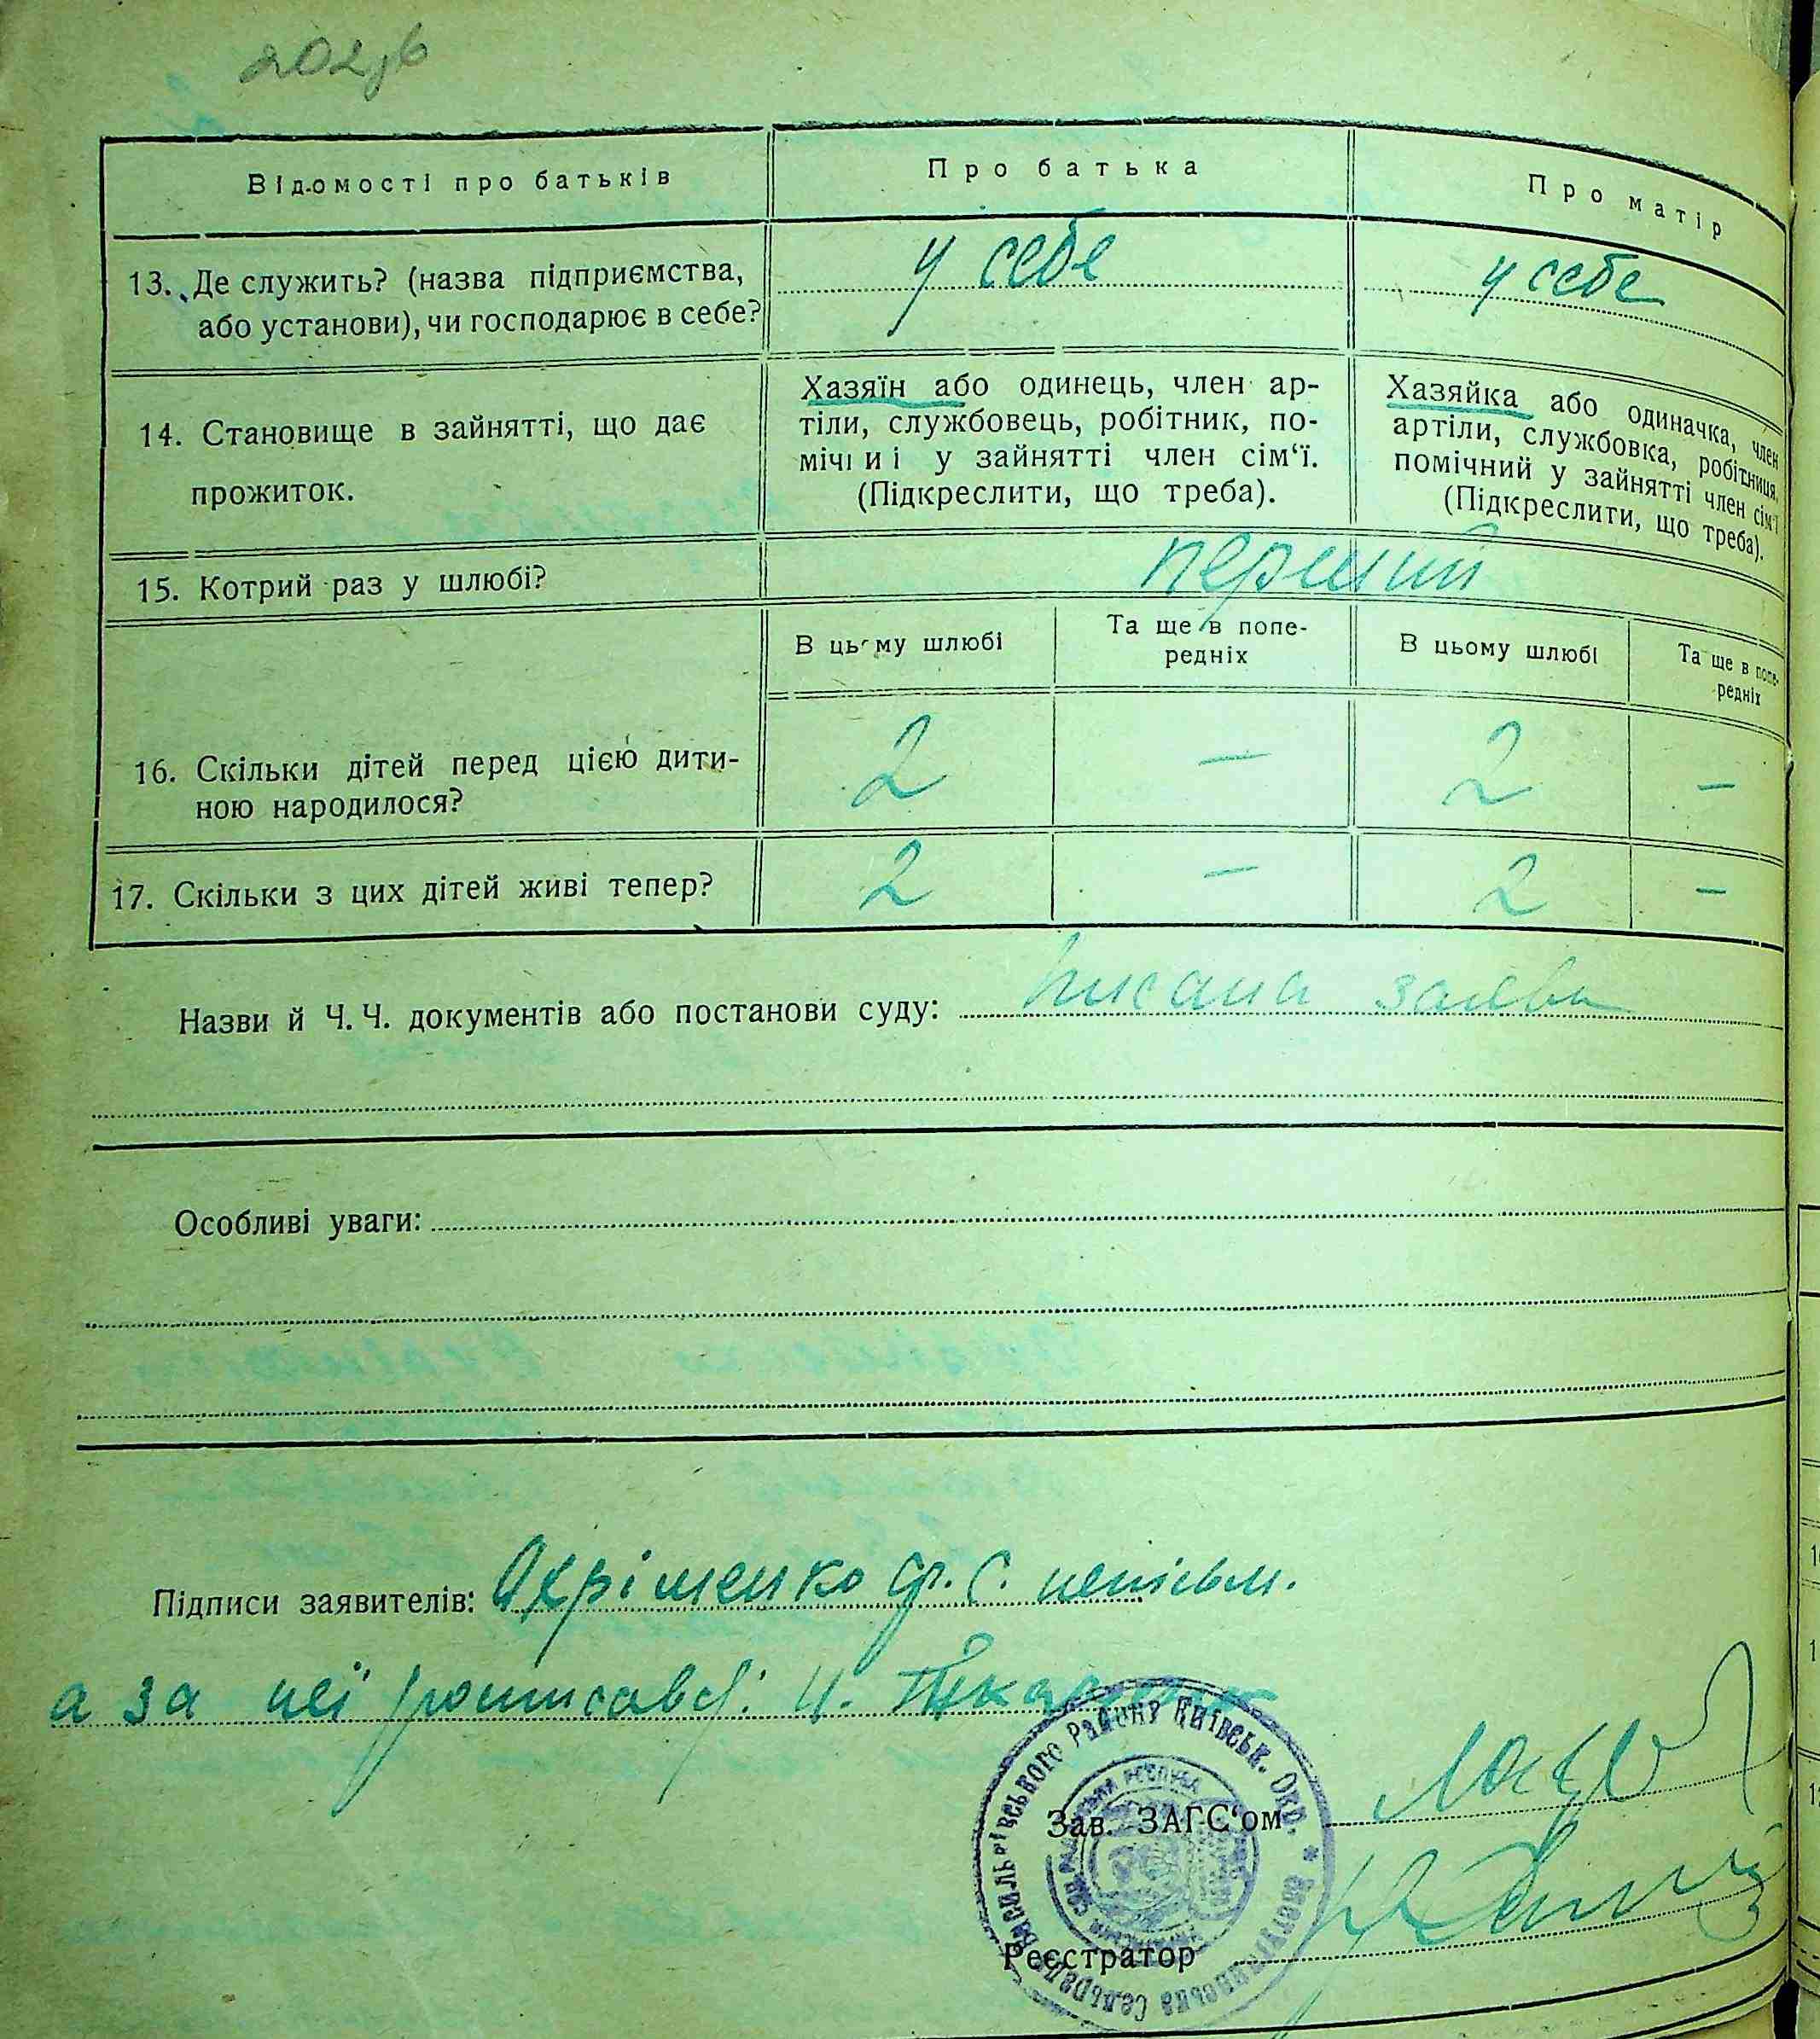 202зв
Відомості про батьків
Про батька
Про матір
13. Де служить? (назва підприємства,
або установи), чи господарює в себе?
у себе
у себе
14. Становище в зайнятті, що дає
прожиток.
Хазяїн або одинець, член ар-
тіли, службовець, робітник, по-
мічниі у зайнятті член сім‘ї.
(Підкреслити, що треба).
Хазяйка або одиначка, член
артіли, службовка, робітниця,
помічний у зайнятті член сім‘ї
(Підкреслити, що треба).
15. Котрий раз у шлюбі?
перший
В цьому шлюбі
Та ще в попе-
редніх
В цьому шлюбі
Та ще в попе-
редніх
16. Скільки дітей перед цією дити-
ною народилося?
2
—
2
—
17. Скільки з цих дітей живі тепер?
2
—
2
—
Назви й Ч. Ч. документів або постанови суду: писана заява
Особливі уваги:
Підписи заявителів: Охріменко С. неписьм.
а за неї росписавсь:
Зав. ЗАГС‘ом
Реєстратор
Васильківського Району Київськ. Окр. * Сельрада